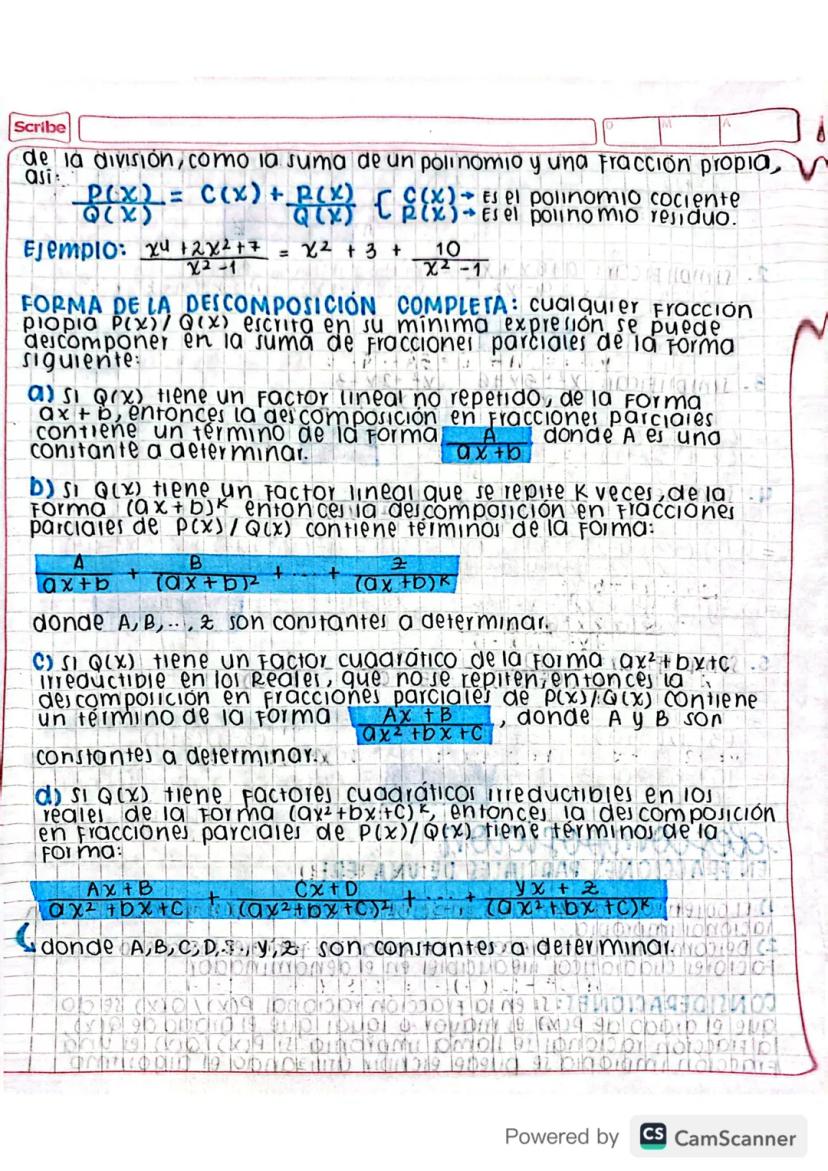 Scribe
D M A
de la división, como la suma de un polinomio y una fracción propia,
así:
P(x)/Q(x) = C(x) + R(x)/Q(x) { C(x)→ Es el polinomio cociente
R(x)→ Es el polinomio residuo.
Ejemplo: x⁴+2x²+7/x²-1 = x² + 3 + 10/x²-1
FORMA DE LA DESCOMPOSICIÓN COMPLETA: cualquier fracción
propia P(x)/Q(x) escrita en su mínima expresión se puede
descomponer en la suma de fracciones parciales de la forma
siguiente:
a) Si Q(x) tiene un factor lineal no repetido, de la forma
ax + b, entonces la descomposición en fracciones parciales
contiene un término de la forma A/ax+b donde A es una
constante a determinar.
b) Si Q(x) tiene un factor lineal que se repite K veces, de la
forma (ax+b)ᴷ entonces la descomposición en fracciones
parciales de P(x)/Q(x) contiene términos de la forma:
A/ax+b + B/(ax+b)² + ... + z/(ax+b)ᴷ
donde A, B, ..., z son constantes a determinar.
c) Si Q(x) tiene un factor cuadrático de la forma ax²+bx+c
irreductible en los Reales, que no se repiten, entonces la
descomposición en fracciones parciales de P(x)/Q(x) contiene
un término de la forma Ax + B/ax²+bx+c , donde A y B son
constantes a determinar.
d) Si Q(x) tiene factores cuadráticos irreductibles en los
reales de la forma (ax²+bx+c)ᴷ, entonces la descomposición
en fracciones parciales de P(x)/Q(x) tiene términos de la
forma:
Ax+B/ax²+bx+c + Cx+D/(ax²+bx+c)² + ... + yx + z/(ax²+bx+c)ᴷ
donde A, B, C, D, ..., y, z son constantes a determinar.
Powered by CS CamScanner